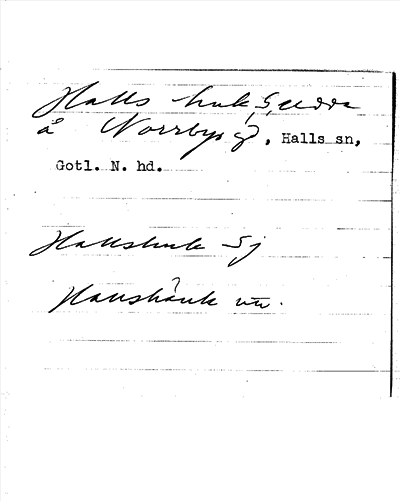 Halls huk, udde
å Norrbys ä, Halls sn,
Gotl. N. hd.
Hallshuk Sj
Haushåuk un.